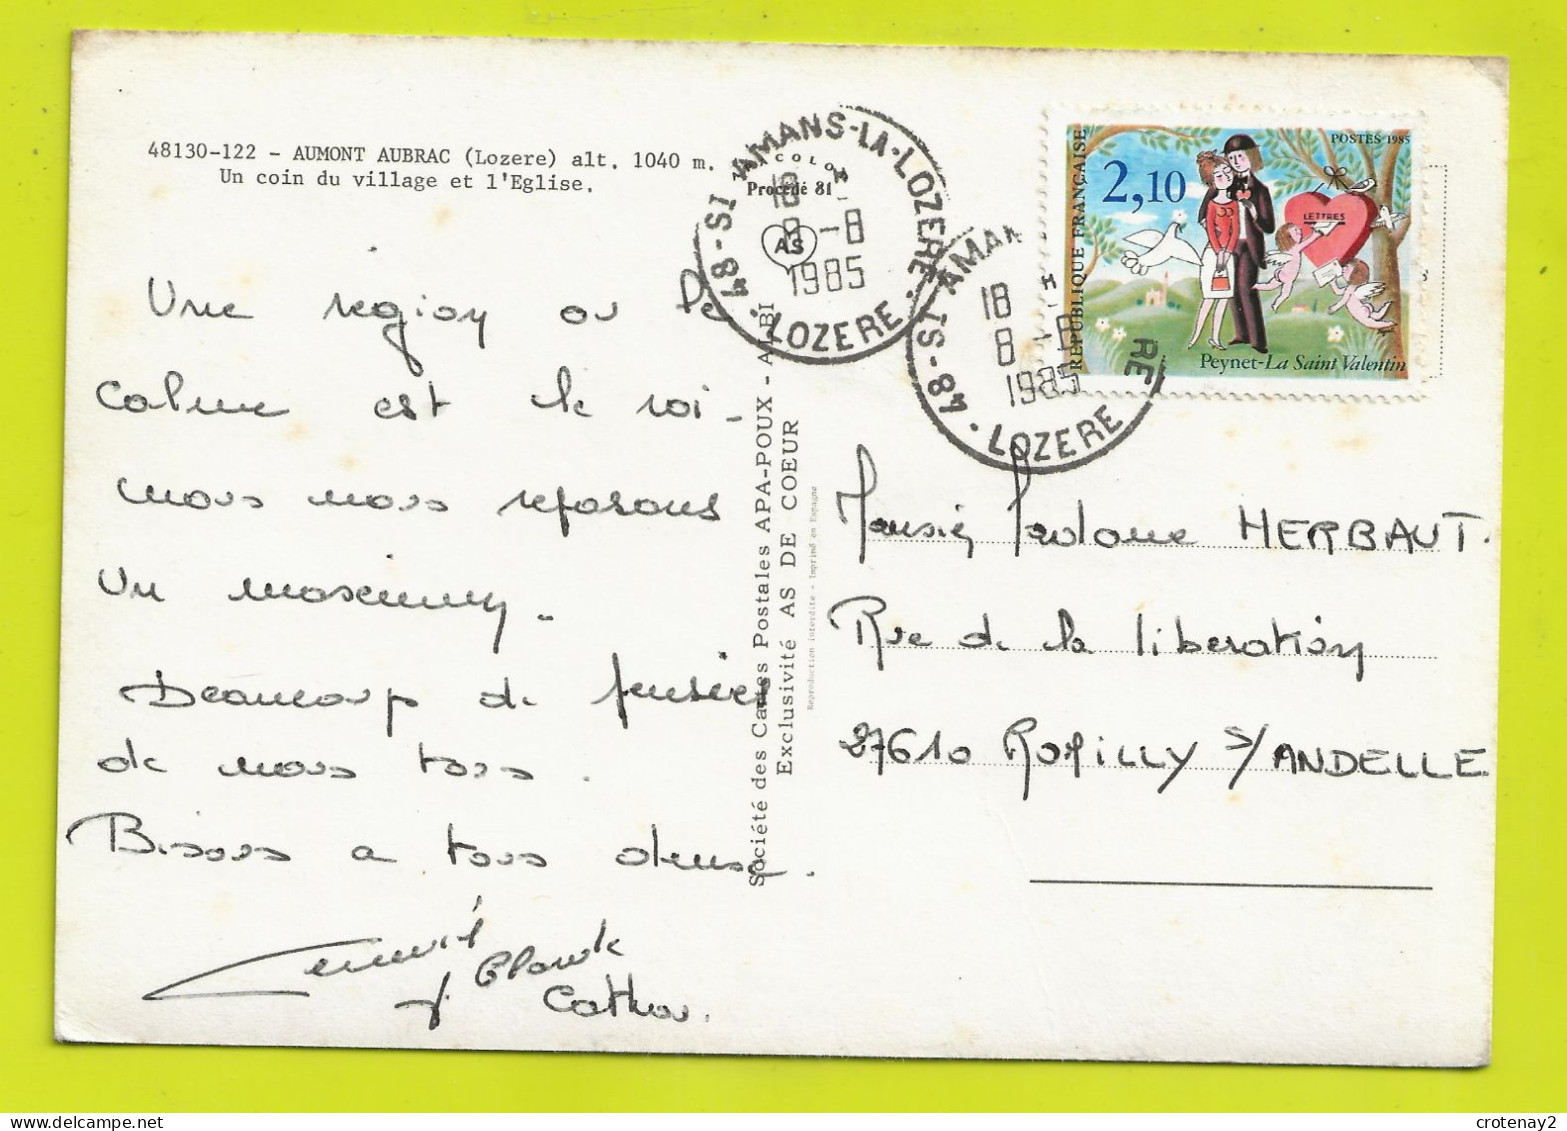 48130-122 - AUMONT AUBRAC (Lozere) alt. 1040 m.
Un coin du village et l'Eglise.
Une region ou le
calme est le roi -
nous nous reposons
un maximum -
Beaucoup de pensées
de nous tous .
Bisous a tous deux .
Claude
Cathy.
Société des Cartes Postales APA-POUX - ALBI
Exclusivité AS DE COEUR
Reproduction interdite - Imprimé en Espagne
Procédé 81
AS
48 - ST AMANS-LA-LOZERE · LOZERE ·
18 H
8 -8
1985
48 - ST AMAN RE · LOZERE
18 H
8 -8
1985
POSTES 1985
REPUBLIQUE FRANÇAISE
2,10
LETTRES
Peynet-La Saint Valentin
Monsieur Madame HERBAUT.
Rue de la liberation
27610 ROMILLY S/ANDELLE
crotenay2